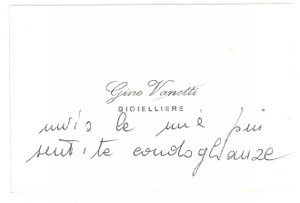 Gino Vanotti
GIOIELLIERE
invia le mie più
sentite condoglianze